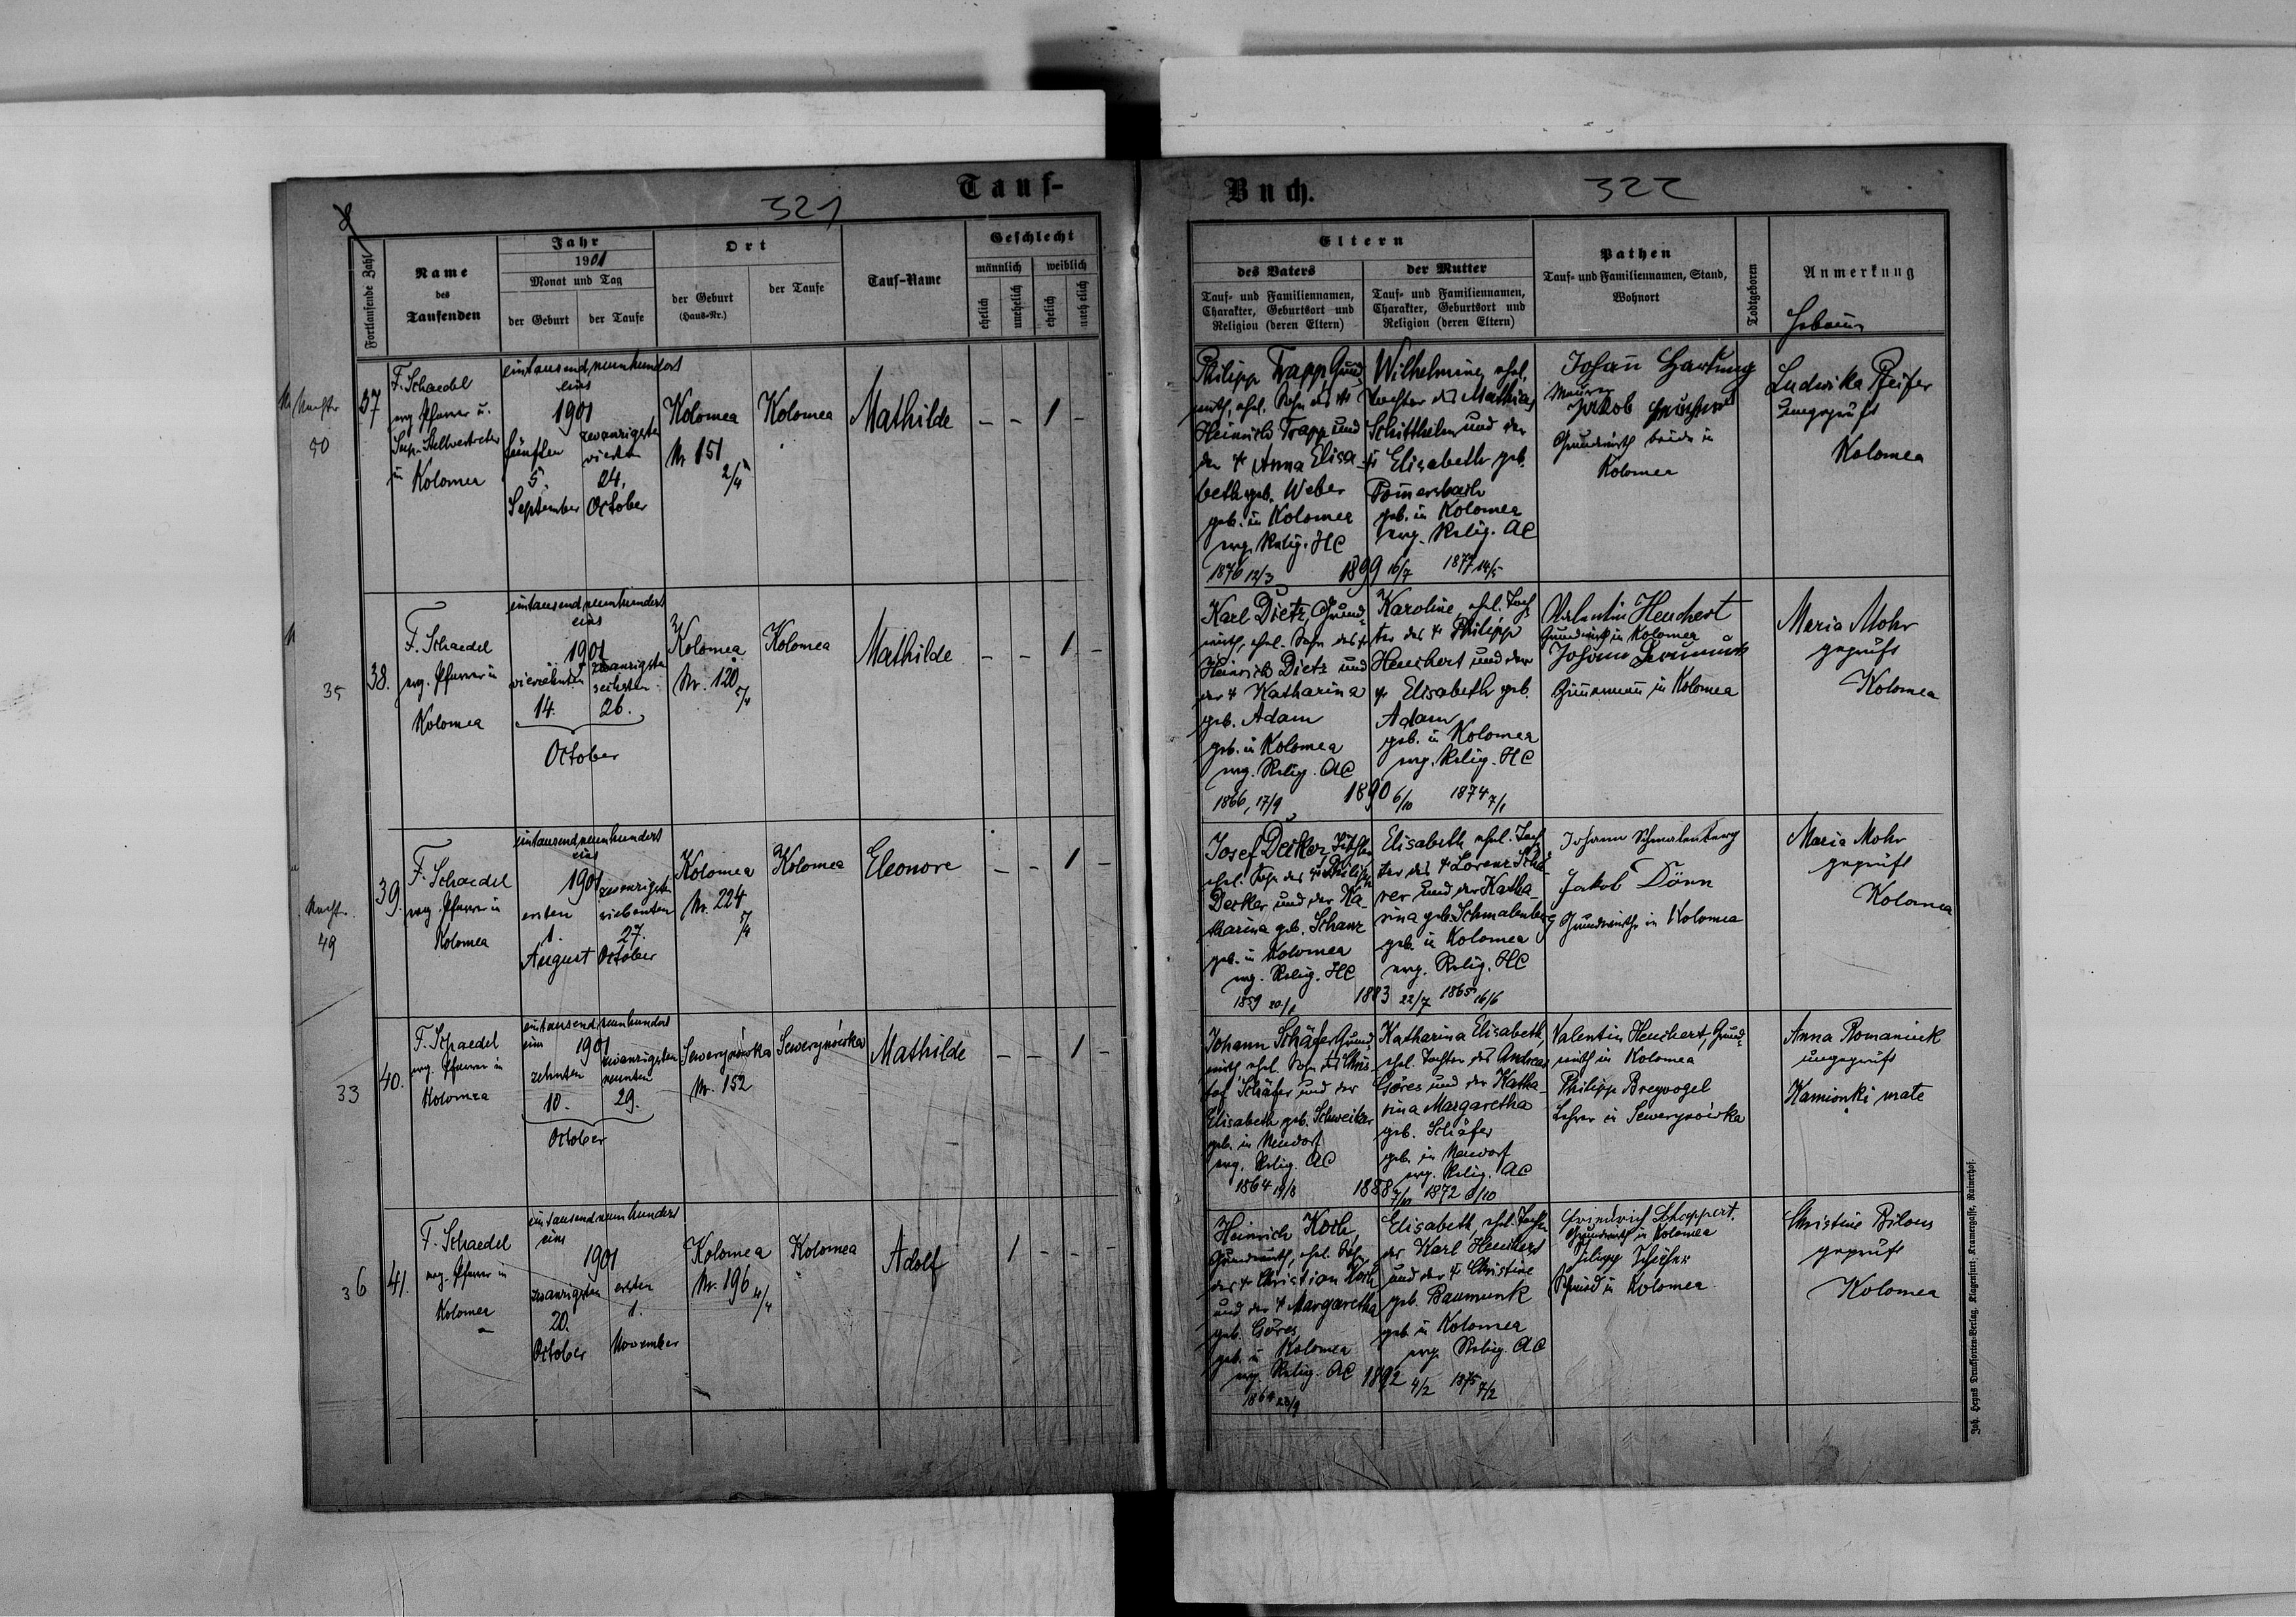 Tauf-
321
8
Fortlaufende Zahl
Name
des
Taufenden
Jahr
1901
Monat und Tag
der Geburt
der Taufe
Ort
der Geburt
(Haus-Nr.)
der Taufe
Tauf-Name
Geschlecht
männlich
weiblich
ehelich
unehelich
ehelich
unehelich
50
37
F. Schaedel
evg. Pfarrer u.
Sup. Stellvertreter
in Kolomea
eintausendneunhundert
eins
1901
fünften
5.
September
zwanzigsten
vierten
24.
October
Kolomea
Nr 151
2/4
Kolomea
Mathilde
- - 1 -
35
38.
F. Schaedel
evg. Pfarrer in
Kolomea
eintausendneunhundert
eins
1901
vierzehnten
14.
zwanzigsten
sechsten
26.
October
Kolomea
Nr. 120
5/4
Kolomea
Mathilde
- - 1 -
49
39.
F. Schaedel
evg. Pfarrer in
Kolomea
eintausendneunhundert
eins
1901
ersten
1.
August
zwanzigsten
siebenten
27.
October
Kolomea
Nr. 224
5/4
Kolomea
Eleonore
- - 1 -
33
40.
F. Schaedel
evg. Pfarrer in
Kolomea
eintausendneunhundert
eins
1901
zehnten
10.
zwanzigsten
neunten
29.
October
Sewerynówka
Nr. 152
Sewerynówka
Mathilde
- - 1 -
36
41.
F. Schaedel
evg. Pfarrer in
Kolomea
eintausendneunhundert
eins
1901
zwanzigsten
20.
October
ersten
1.
November
Kolomea
Nr. 196
4/4
Kolomea
Adolf
1 - - -
Buch.
322
Eltern
des Vaters
Tauf- und Familiennamen,
Charakter, Geburtsort und
Religion (deren Eltern)
der Mutter
Tauf- und Familiennamen,
Charakter, Geburtsort und
Religion (deren Eltern)
Pathen
Tauf- und Familiennamen, Stand,
Wohnort
Todtgeboren
Anmerkung
Philipp Trapp Grund-
wirth, ehel. Sohn des
Heinrich Trapp und
der Anna Elisa-
beth geb. Weber
geb. in Kolomea
evg. Relig. HC
1876 12/3
1899 16/7
Wilhelmine, ehel.
Tochter des Mathias
Schitthelm und der
Elisabeth geb.
geb. in Kolomea
evg. Relig. AC
1877 14/5
Johann Hartung
Maurer
Jakob
Grundwirth beide in
Kolomea
Ludwika Pfeifer
ungeprüft
Kolomea
Karl Dietz, Grund-
wirth, ehel. Sohn des
Heinrich Dietz und
der Katharina
geb. Adam
geb. in Kolomea
evg. Relig. AC
1866, 17/9
1890 6/10
Karoline, ehel. Toch-
ter des Philipp
Heuchert und der
Elisabeth geb.
Adam
geb. in Kolomea
evg. Relig. HC
1874 7/1
Valentin Heuchert
Grundwirth in Kolomea
Johann
Zimmermann in Kolomea
Maria Mohr
geprüft
Kolomea
Josef Decker
ehel. Sohn des Philipp
Decker und der Ka-
tharina geb. Schanz
geb. in Kolomea
evg. Relig. HC
1859
1883 22/7
Elisabeth ehel. Toch-
ter des Lorenz Schä-
rer und der Katha-
rina geb. Schmalenberg
geb. in Kolomea
evg. Relig. HC
1865 16/6
Johann Schmalenberg
Jakob Dönn
Grundwirthe in Kolomea
Maria Mohr
geprüft
Kolomea
Johann Schäfer Grund-
wirth ehel. Sohn des Chris-
tof Schäfer und der
Elisabeth geb. Schweitzer
geb. in Neudorf
evg. Relig. AC
1864 19/8
1888
Katharina Elisabeth,
ehel. Tochter des Andreas
Göres und der Katha-
rina Margaretha
geb. Schäfer
geb. in Neudorf
evg. Relig. AC
1872 8/10
Valentin Heuchert, Grund-
wirth in Kolomea
Philipp Bregvogel
Lehrer in Sewerynówka
Anna Romaniuk
ungeprüft
Kamionki małe
Heinrich Koch,
Grundwirth, ehel. Sohn
des Christian Koch
und der Margaretha
geb. Göres
geb. in Kolomea
evg. Relig. AC
1864 23/9
1892 4/2
Elisabeth ehel. Tochter
des Karl Heuchert
und der Christine
geb. Baumunk
geb. in Kolomea
evg. Relig. AC
1875 7/2
Friedrich Schappert,
Grundwirth in Kolomea
Filipp Schäfer
Schmied in Kolomea
Christine Bilous
geprüft
Kolomea
Joh. Heyns Drucksorten-Verlag, Klagenfurt, Kramergasse, Rainerhof.